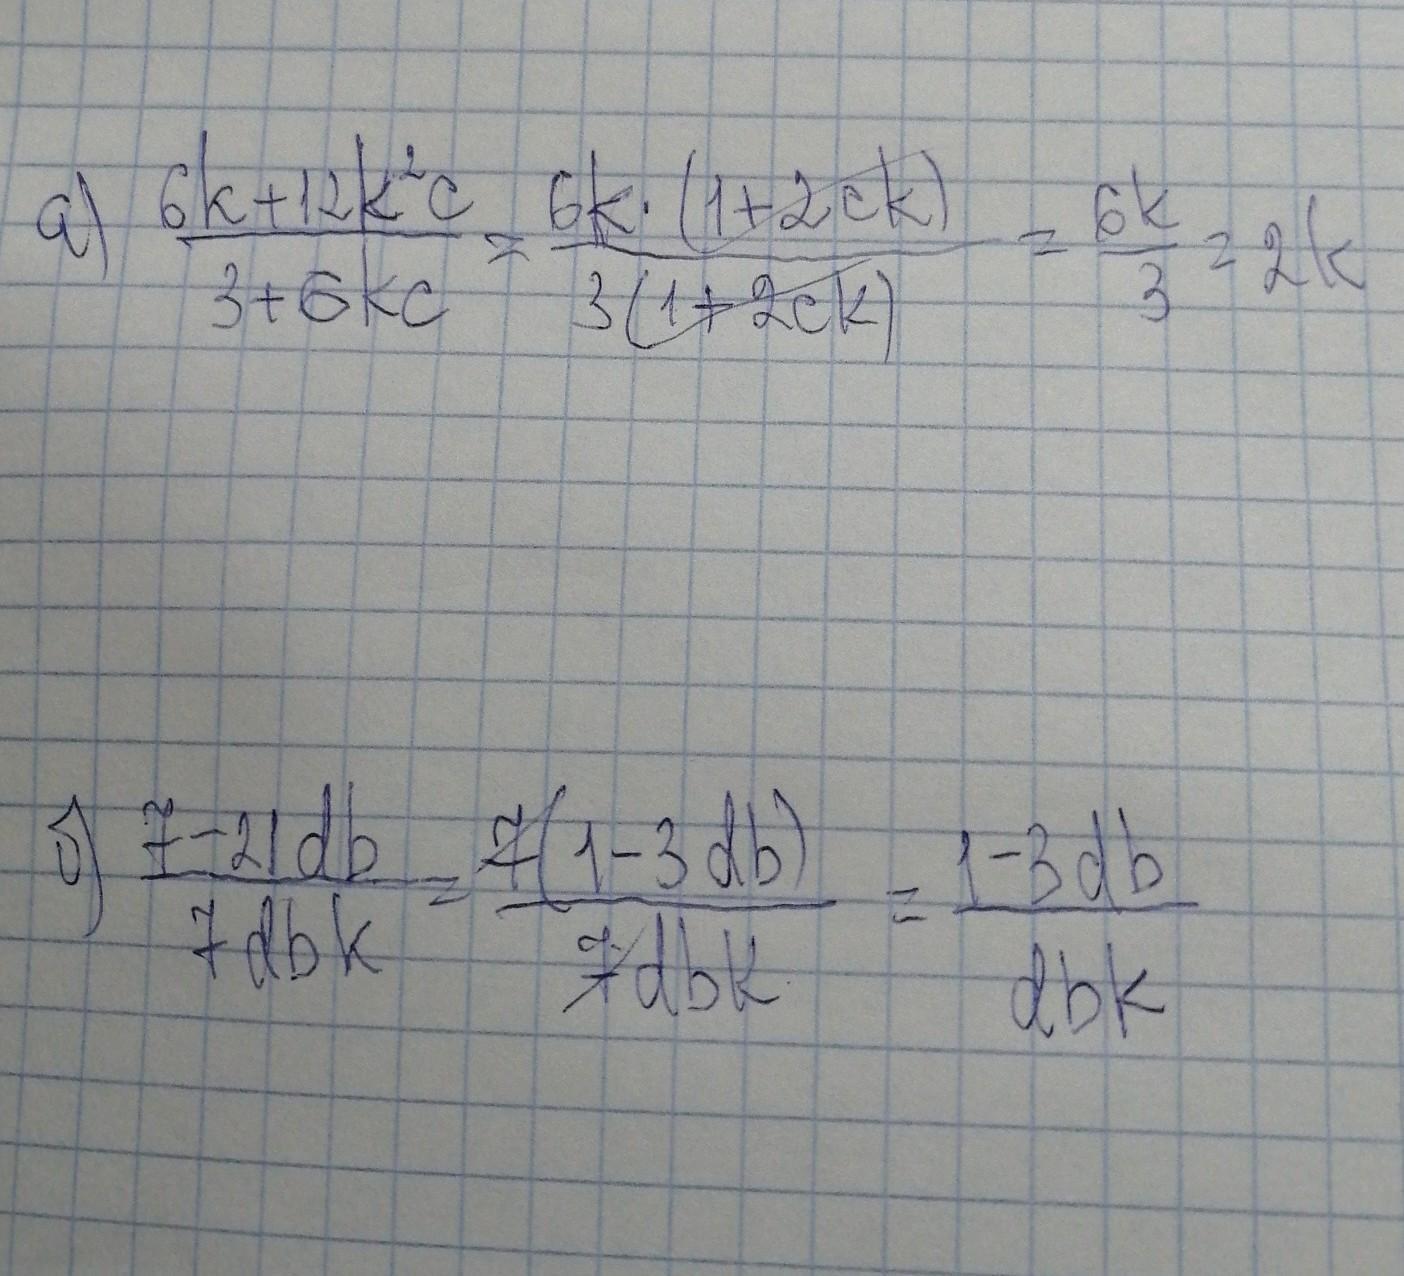 а) (6k+12k²c)/(3+6kc) = (6k·(1+2ck))/(3(1+2ck)) = 6k/3 = 2k
б) (7-21db)/(7dbk) = (7(1-3db))/(7dbk) = (1-3db)/(dbk)